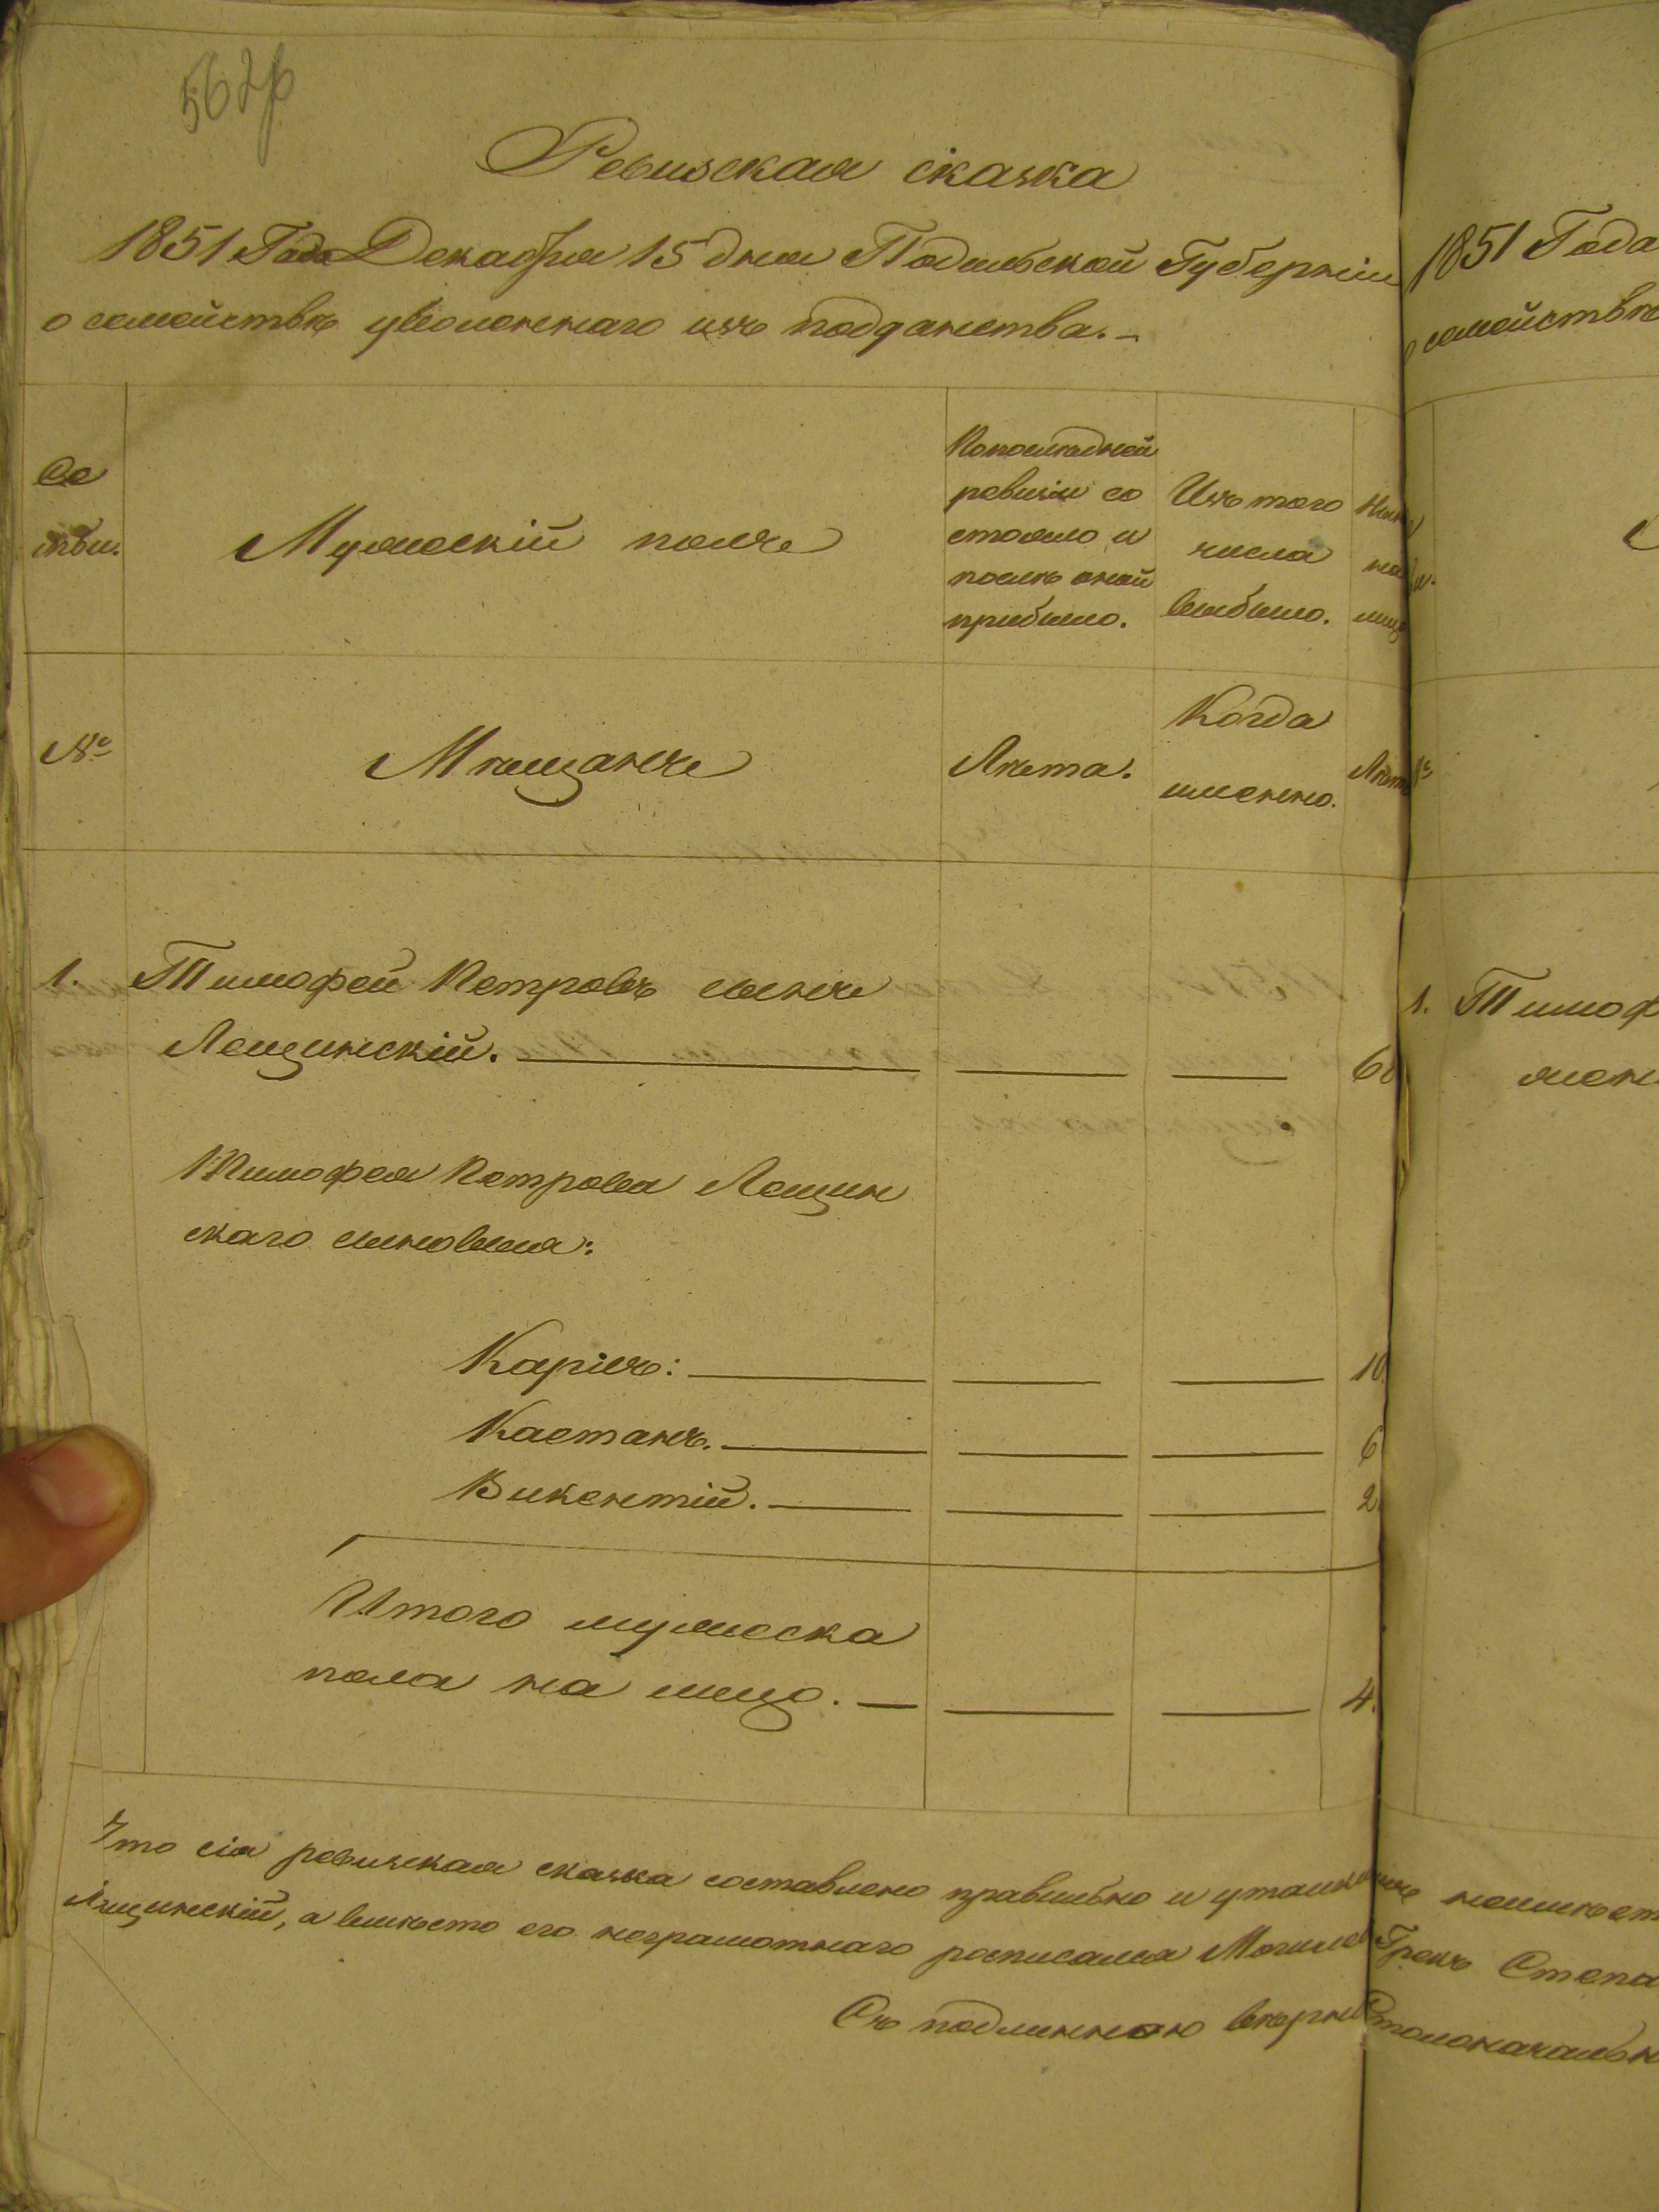 562р
Ревизская сказка
1851 Года Декабря 15 дня Подольской Губерніи
о семействѣ уволеннаго изъ подданства.-
Се
мьи.
Мужескій полъ
По последней
ревизіи со
стояло и
послѣ оной
прибыло.
Изъ того
числа
выбыло.
Ныне
на
лицо
№
Мѣщанъ
Лѣта.
Когда
именно.
Лѣта
1. Тимофей Петровъ сынъ
Лещинскій. 60
Тимофея Петрова Лещин
скаго сыновья:
Карпъ: 10.
Каетанъ. 6
Викентій. 2.
Итого мужеска
пола на лицо. 4.
Что сія ревизская сказка составлено правильно и утайки
Лищинскій, а вмѣсто его неграмотнаго росписался Могилев
Съ подлинною вѣрно
1851 Года
о семействѣ
1. Тимоф
жен
неимѣет
Грекъ Степа
Столоначальн